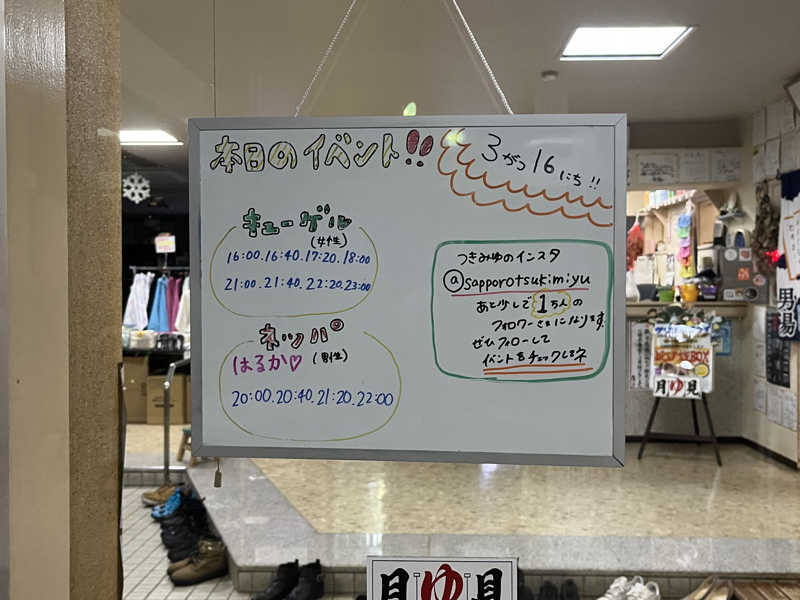 本日のイベント!!
3がつ16にち!!
キューゲル
(女性)
16:00.16:40.17:20.18:00
21:00.21:40.22:20.23:00
ネッパ°
はるか♡ (男性)
20:00.20:40.21:20.22:00
つきみゆのインスタ
@sapporotsukimiyu
あと少しで1万人の
フォロワーさまになります
ぜひフォローして
イベントをチェックしてネ
男湯
月ゆ見
月ゆ見